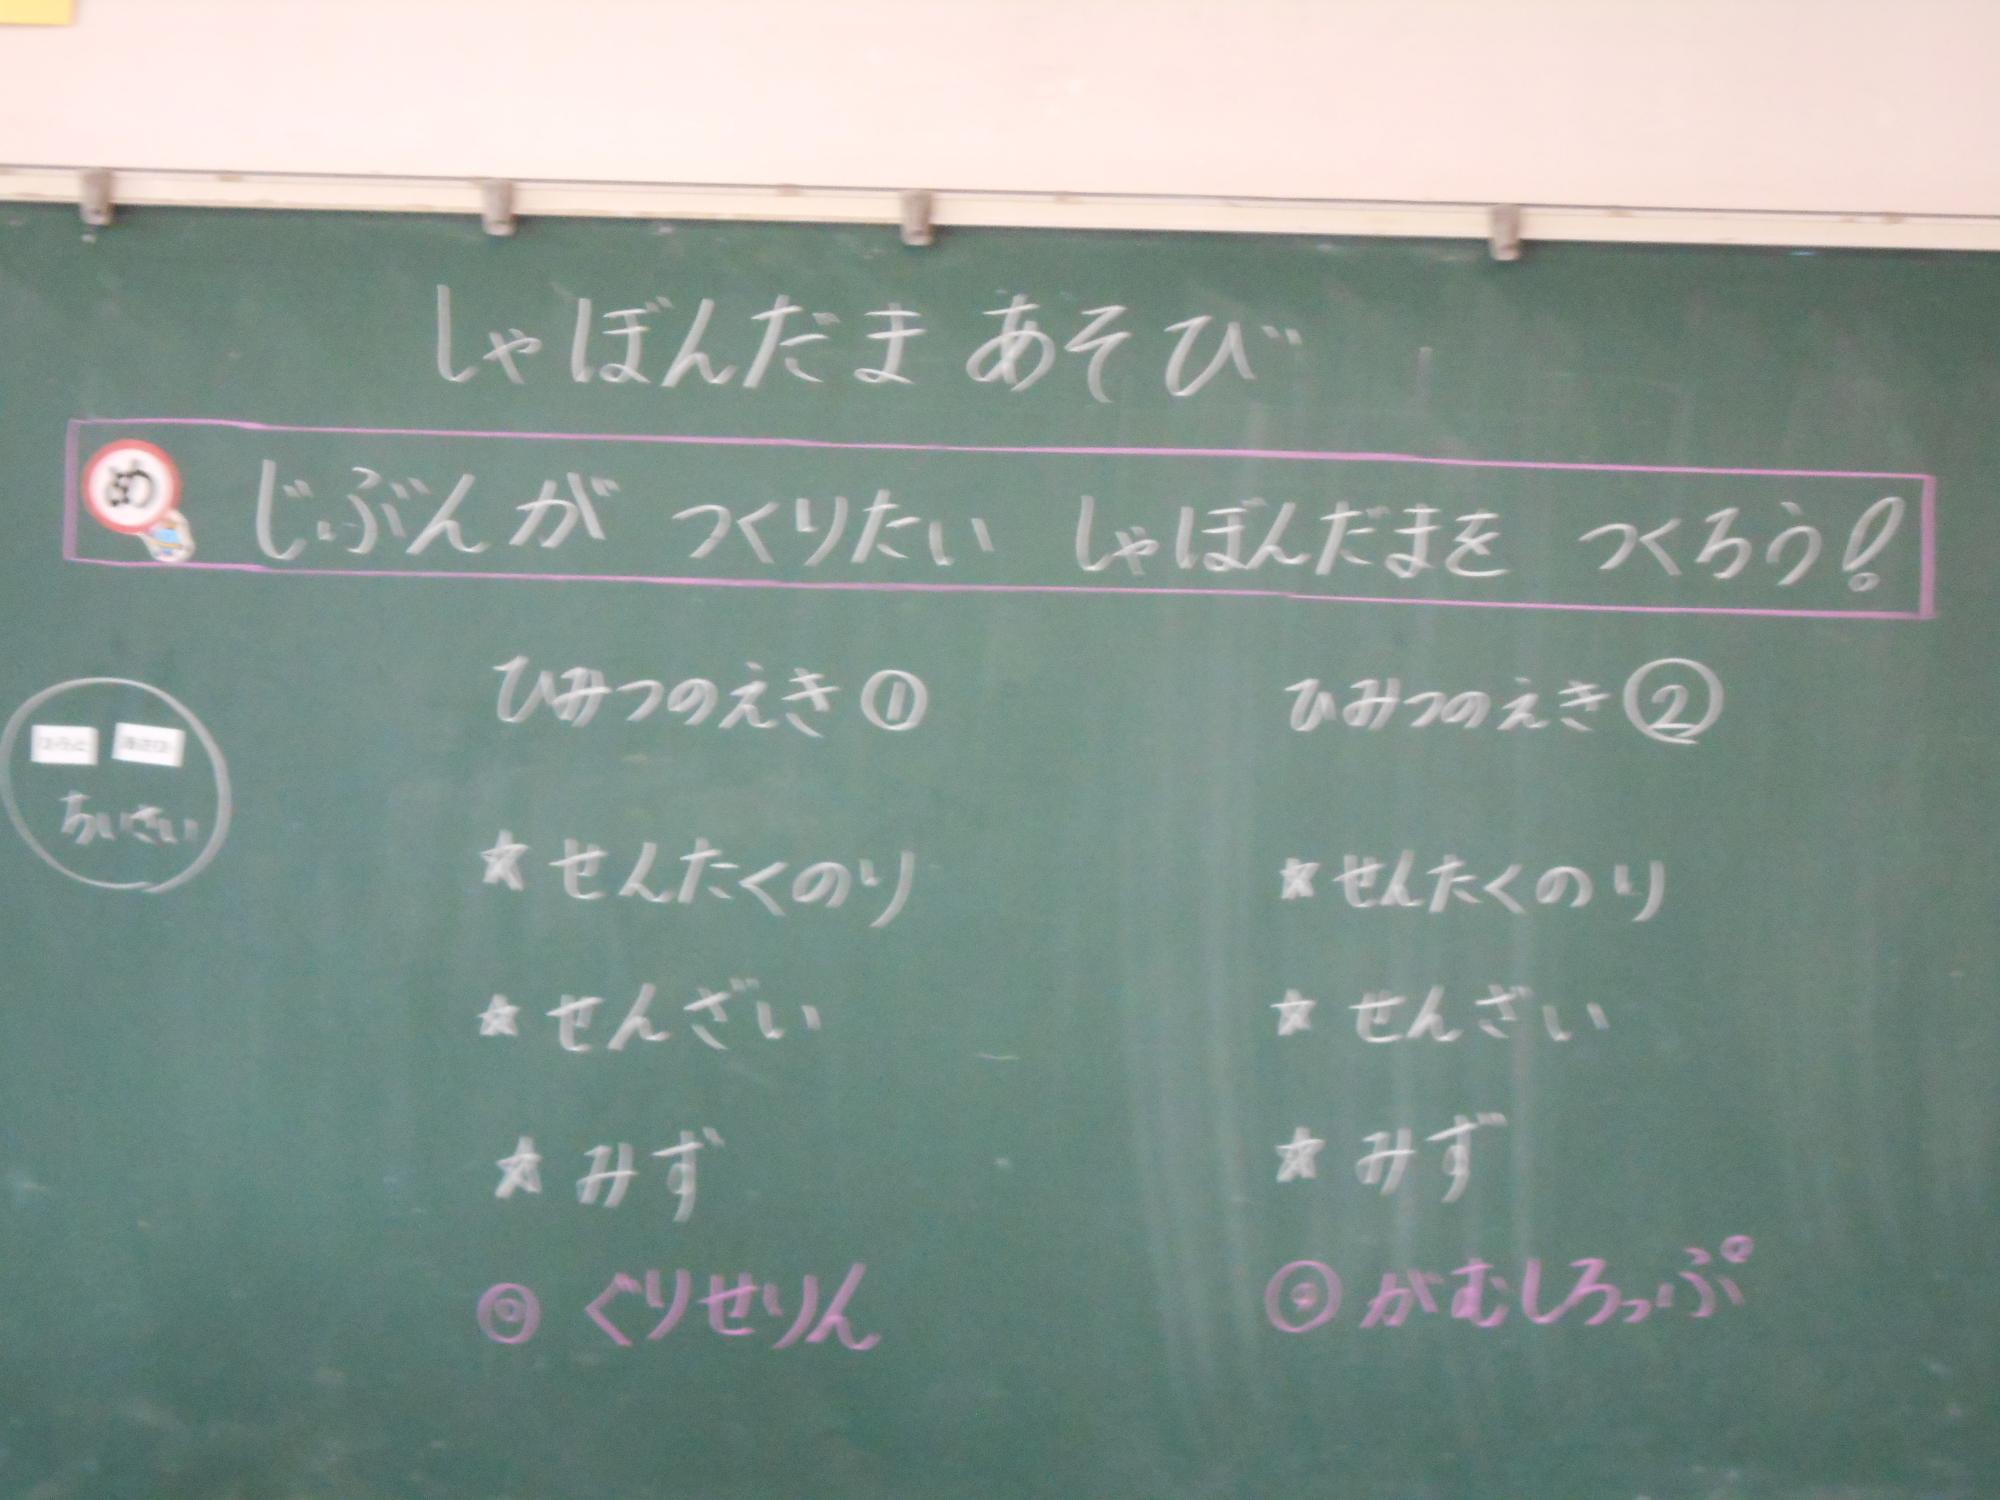 しゃぼんだまあそび
め じぶんが つくりたい しゃぼんだまを つくろう!
ひみつのえき①
★せんたくのり
★せんざい
★みず
ぐりせりん
ひみつのえき②
★せんたくのり
★せんざい
★みず
がむしろっぷ
ちいさい